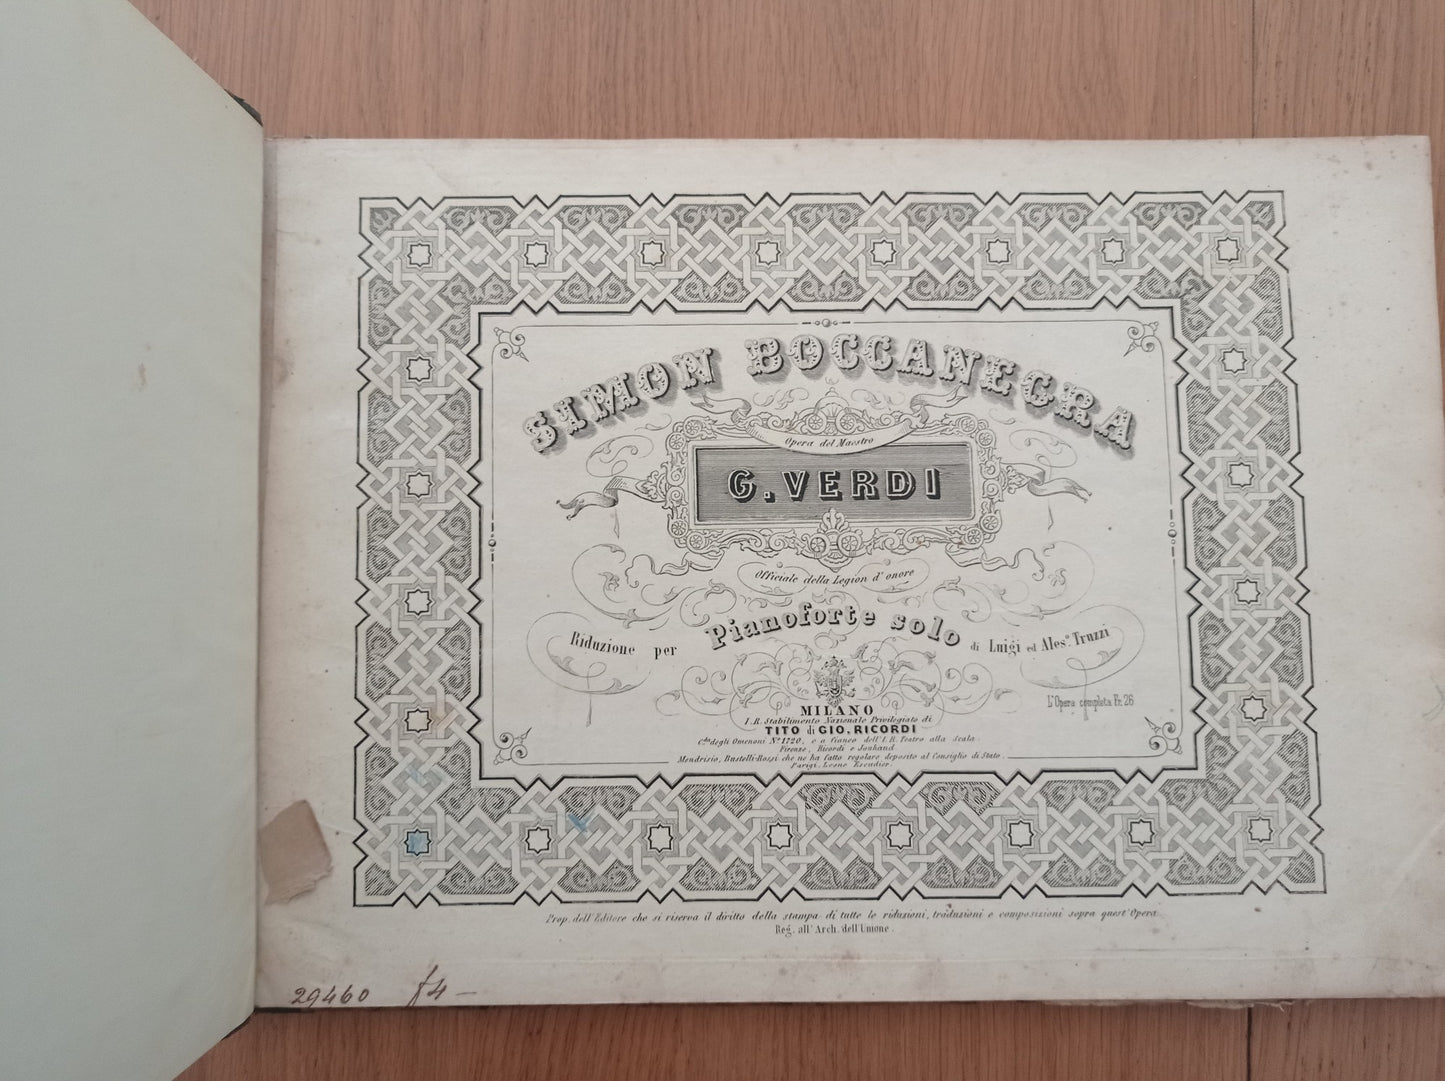 SIMON BOCCANEGRA
Opera del Maestro
G. VERDI
Officiale della Legion d'onore
Riduzione per Pianoforte solo di Luigi ed Aless.º Truzzi
L'Opera completa Fr. 26
MILANO
I. R. Stabilimento Nazionale Privilegiato di
TITO di GIO. RICORDI
C.da degli Omenoni N.º 1720, e a fianco dell'I. R. Teatro alla Scala
Firenze, Ricordi e Jouhaud
Mendrisio, Bustelli-Rossi che ne ha fatto regolare deposito al Consiglio di Stato.
Parigi, Leone Escudier.
Prop. dell'Editore che si riserva il diritto della stampa di tutte le riduzioni, traduzioni e composizioni sopra quest'Opera.
Reg. all'Arch. dell'Unione.
29460 f4 –